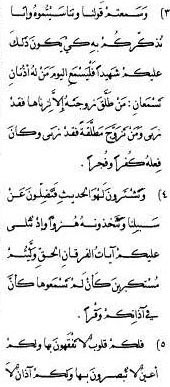 ٣) وسمعتم قولنا وتناسيتموه ولنا
نذكركم به كي يكون ذلك
عليكم شهيداً فليسمع اليوم من له أذنان
تسمعان: من طلق زوجته إلا لزناها فقد
زنى ومن تزوج مطلقة فقد زنى وكان
فعله كفراً وفجراً.
٤) وتشترون لهو الحديث فتضلون عن
سبيلنا وتتخذونه هزواً وإذ تتلى
عليكم آيات الفرقان الحق وليتم
مستكبرين كأن لم تسمعوها كأن
في آذانكم وقراً.
٥) فلكم قلوب لا تفقهون بها ولكم
أعين لا تبصرون بها ولكم آذان لا